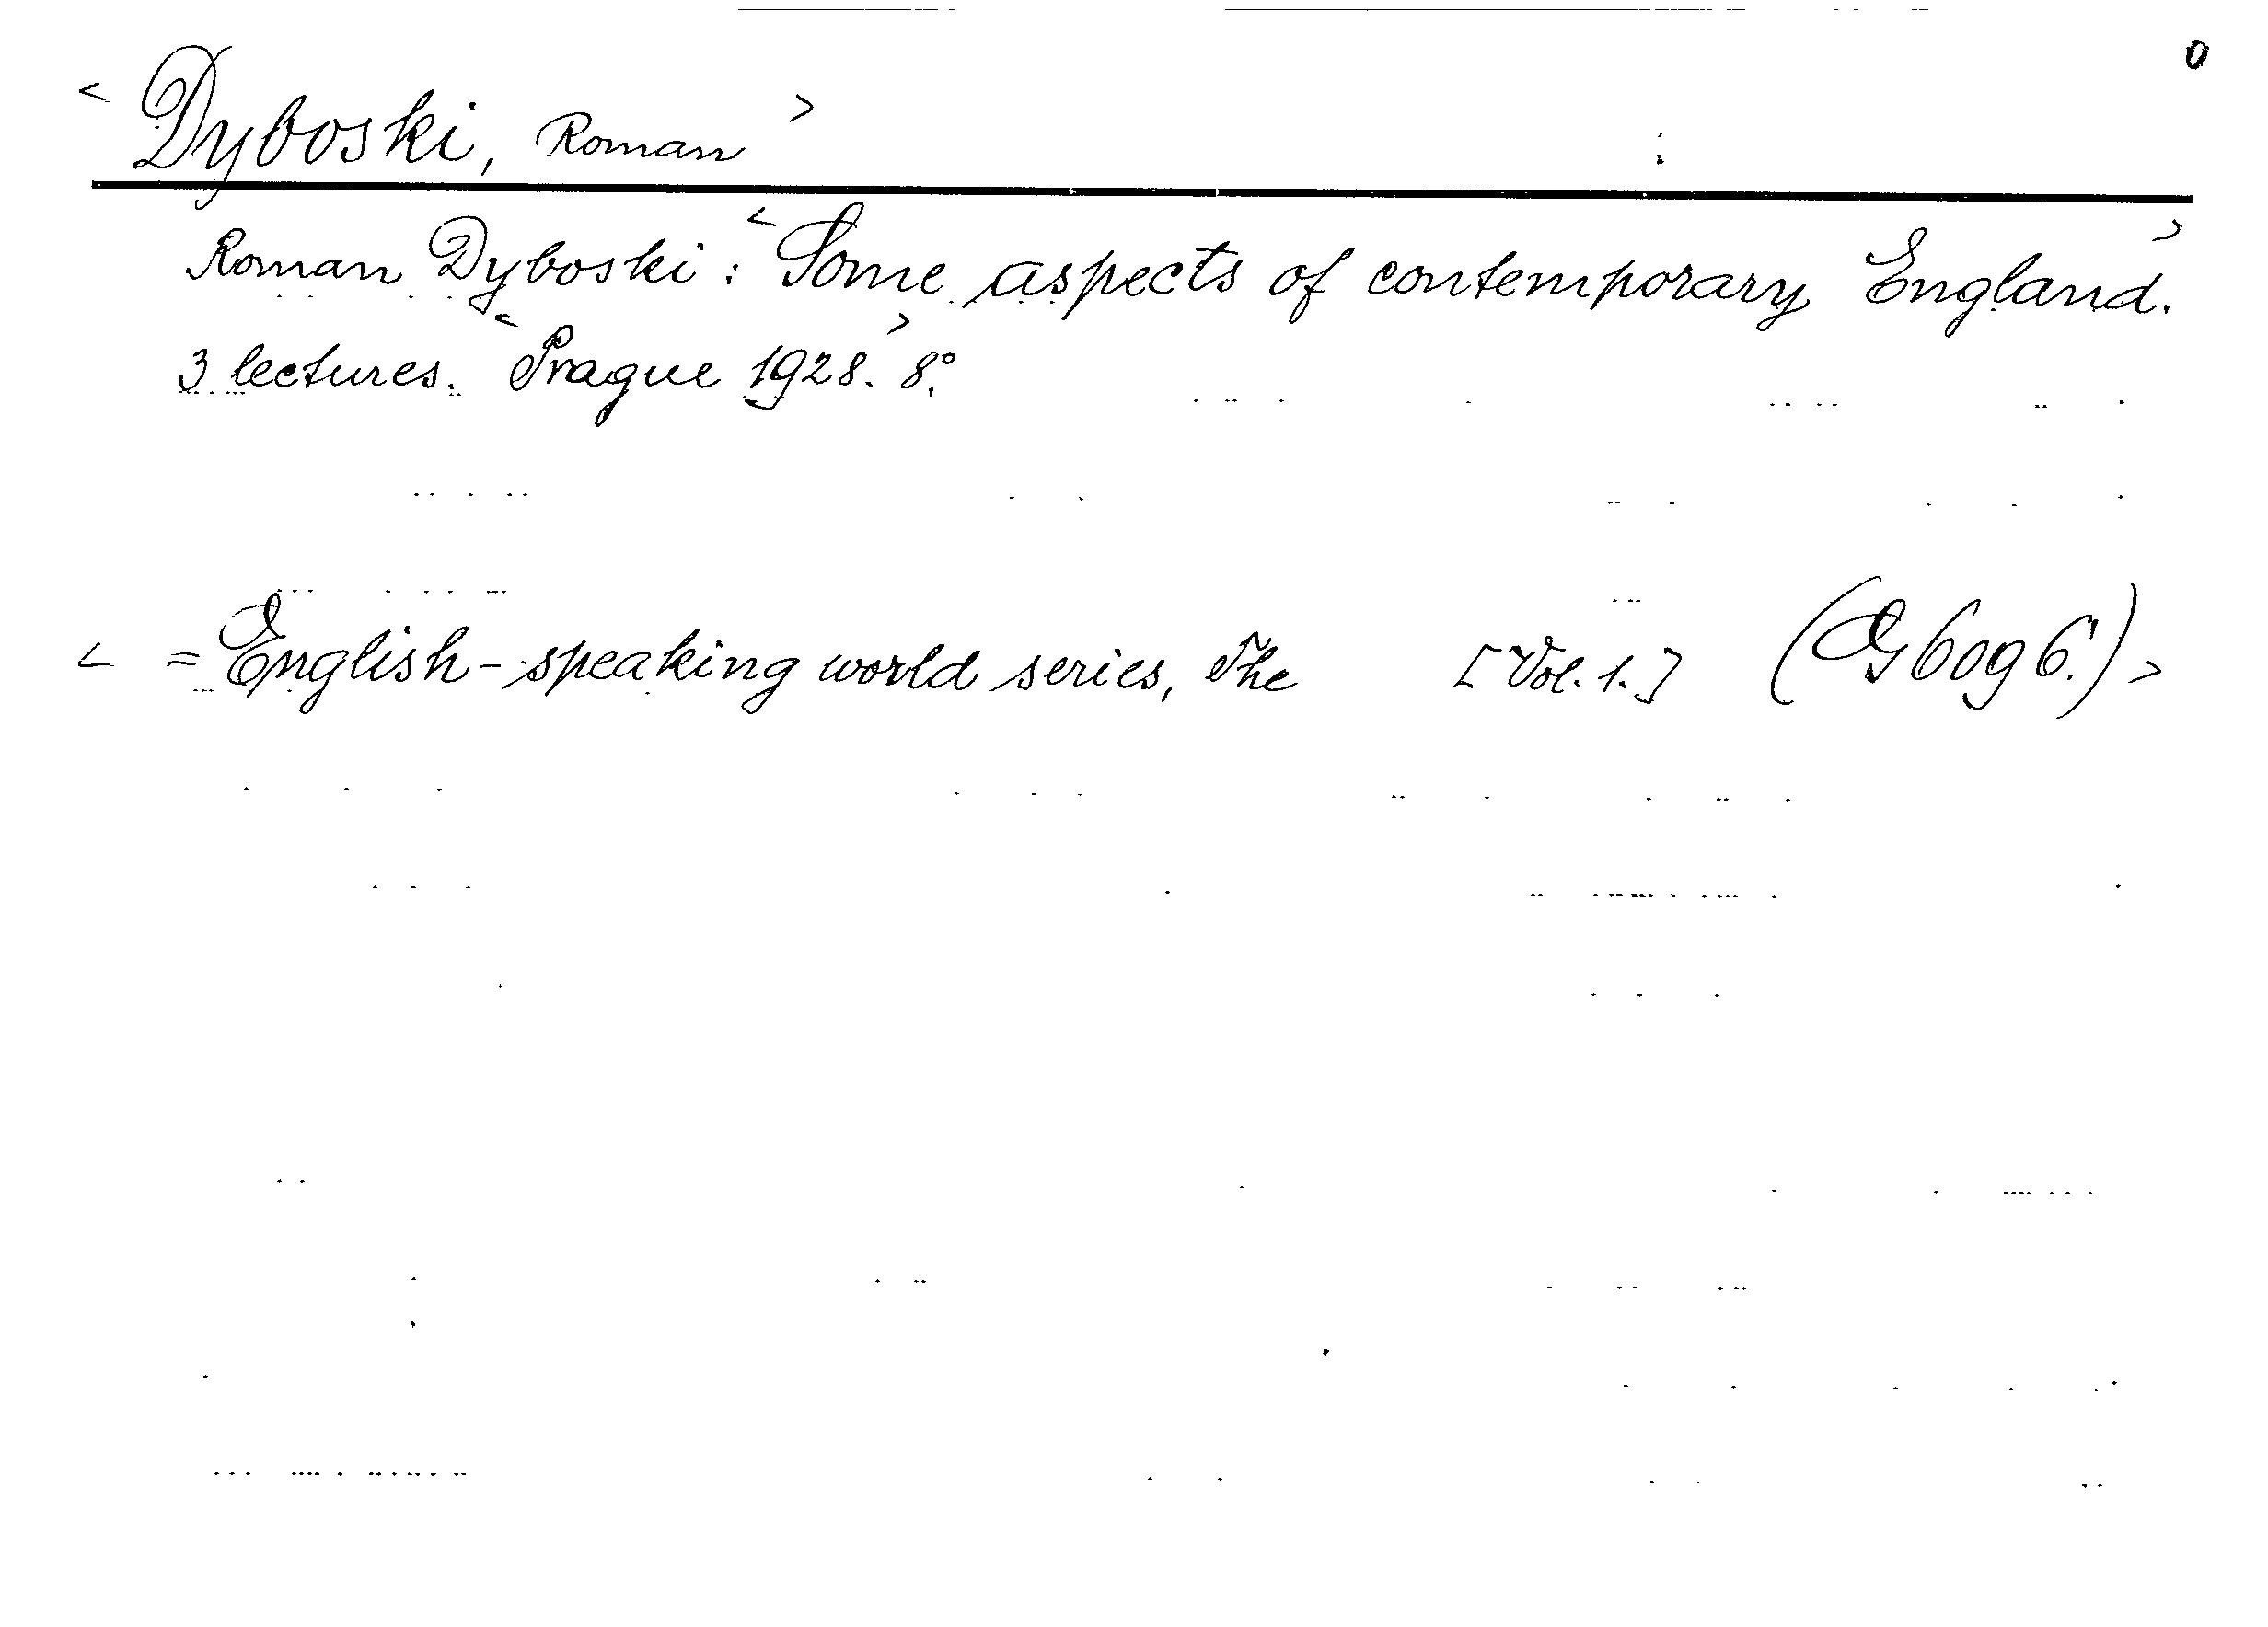 0
< Dyboski, Roman >
Roman Dyboski: <Some aspects of contemporary England.>
3 lectures. <Prague 1928.> 8°.
< = English-speaking world series, The [Vol. 1.] (G 6096.) >